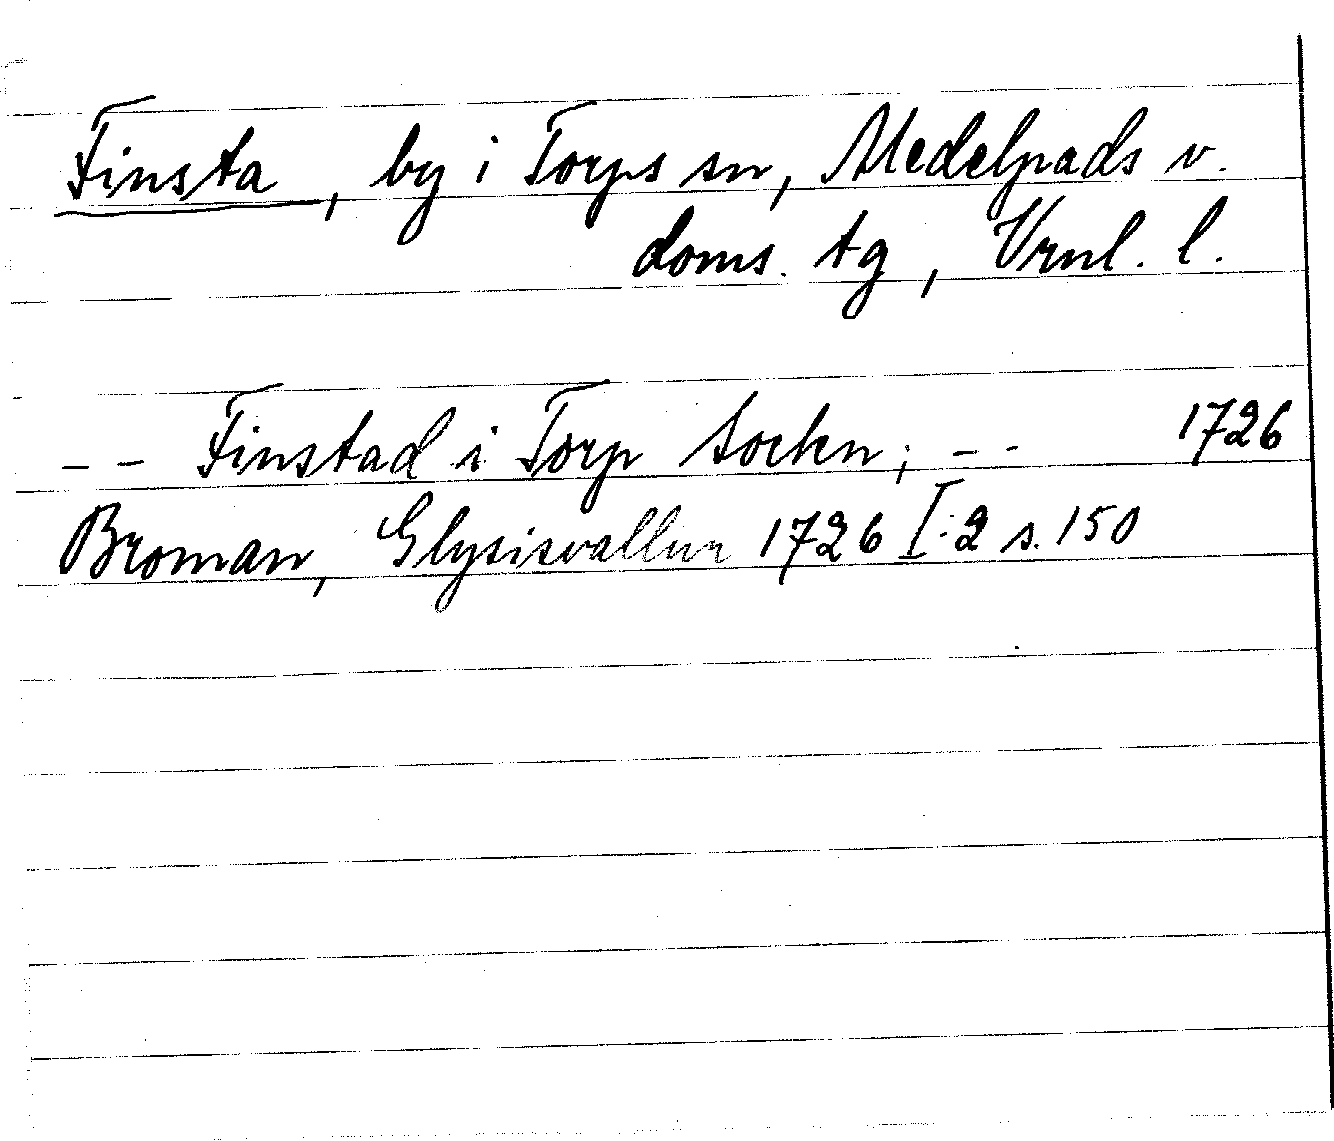 Finsta, by i Torps sn, Medelpads v.
doms. tg, Vrnl. l.
- - Finstad i Torp Sockn; - - 1726
Broman, Glysisvallur 1726 I:2 s. 150